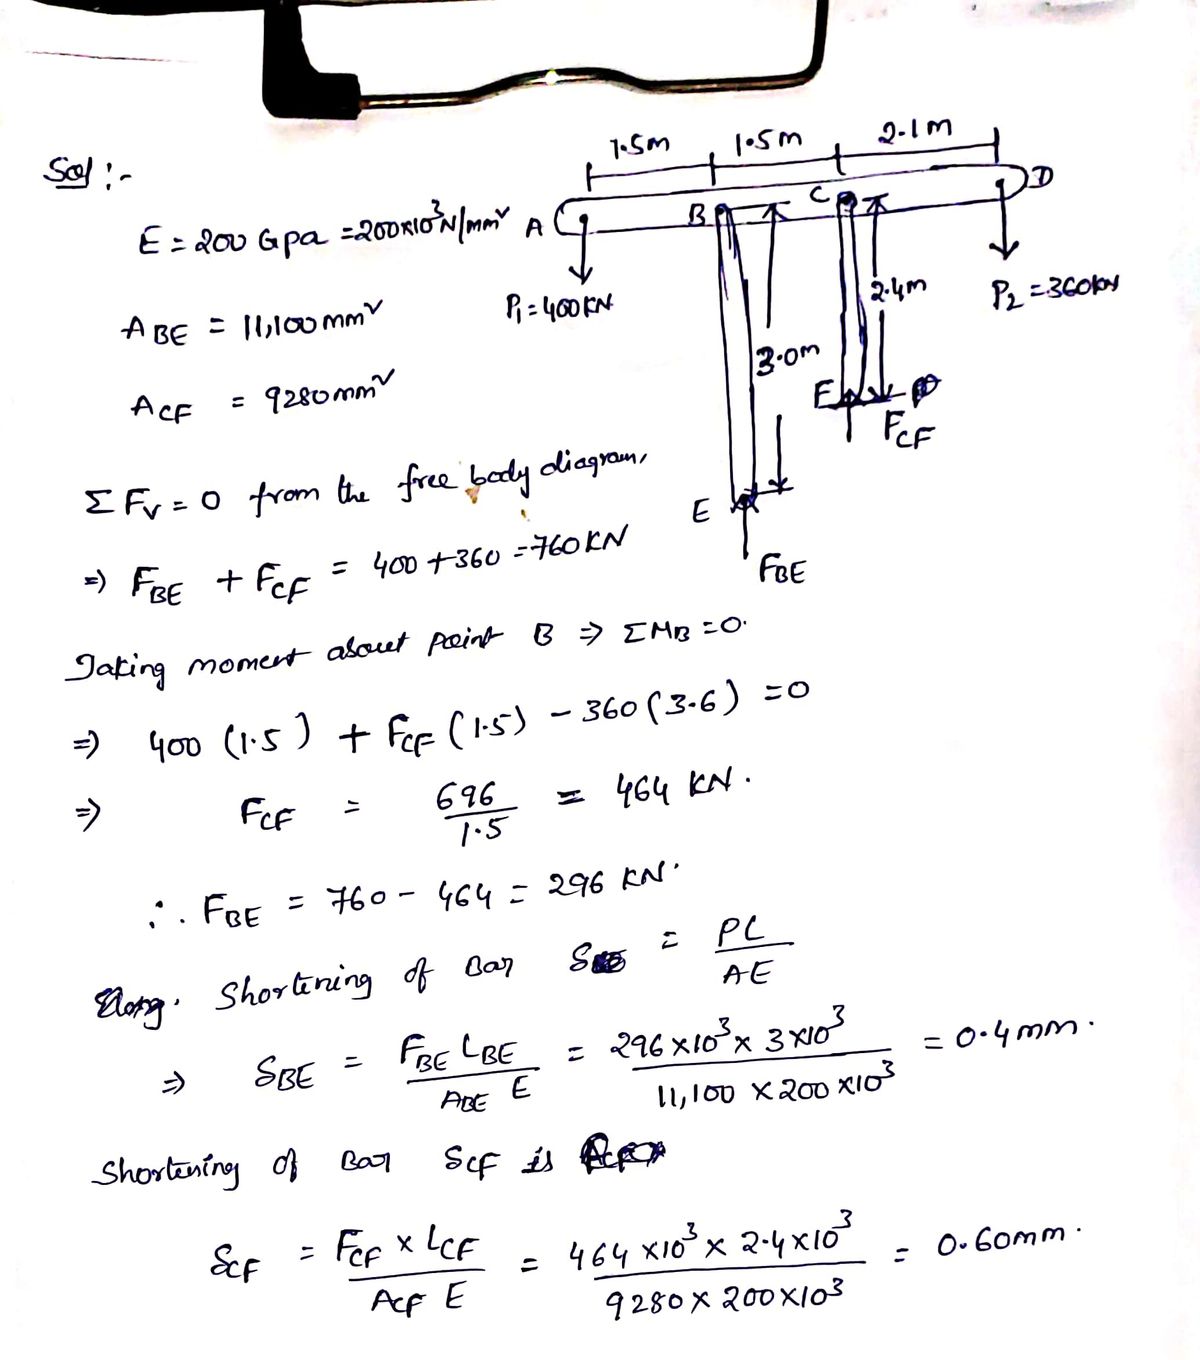 Sol :-
1.5m 1.5m 2.1m
A B C D
E = 200 Gpa = 200x10³ N/mm²
P₁ = 400 KN
2.4m
P₂ = 360KN
A BE = 11,100 mm²
3.0m
A CF = 9280 mm²
F
FCF
Σ Fv = 0 from the free body diagram,
E
⇒ FBE + FCF = 400 + 360 = 760 KN
FBE
Taking moment about point B ⇒ ΣMB = 0.
⇒ 400 (1.5) + FCF (1.5) - 360 (3.6) = 0
⇒ FCF = 696/1.5 = 464 KN.
∴ FBE = 760 - 464 = 296 KN.
Shortening of Bar S = PL/AE
⇒ SBE = FBE LBE/ABE E = 296 x10³ x 3 x10³/11,100 x 200 x10³ = 0.4 mm.
Shortening of Bar SCF is
SCF = FCF x LCF/ACF E = 464 x10³ x 2.4 x10³/9280 x 200 x10³ = 0.60mm.